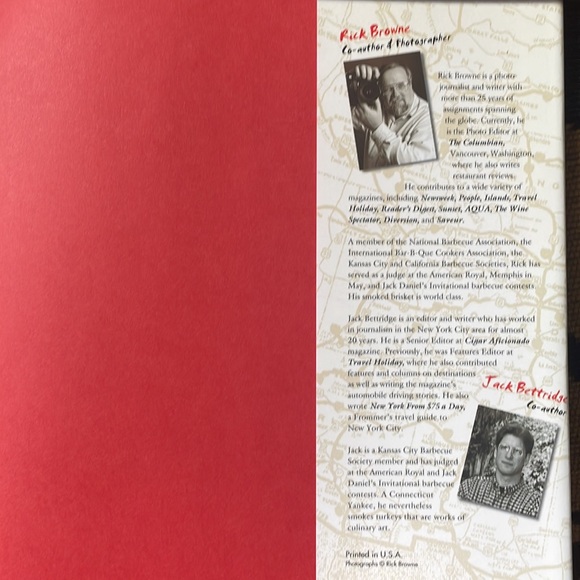 Rick Browne
Co-author & Photographer
Rick Browne is a photo-
journalist and writer with
more than 25 years of
assignments spanning
the globe. Currently, he
is the Photo Editor at
The Columbian,
Vancouver, Washington,
where he also writes
restaurant reviews.
He contributes to a wide variety of
magazines, including Newsweek, People, Islands, Travel
Holiday, Reader's Digest, Sunset, AQUA, The Wine
Spectator, Diversion, and Saveur.
A member of the National Barbecue Association, the
International Bar-B-Que Cookers Association, the
Kansas City and California Barbecue Societies, Rick has
served as a judge at the American Royal, Memphis in
May, and Jack Daniel's Invitational barbecue contests.
His smoked brisket is world class.
Jack Bettridge is an editor and writer who has worked
in journalism in the New York City area for almost
20 years. He is a Senior Editor at Cigar Aficionado
magazine. Previously, he was Features Editor at
Travel Holiday, where he also contributed
features and columns on destinations
as well as writing the magazine's
automobile driving stories. He also
wrote New York From $75 a Day,
a Frommer's travel guide to
New York City.
Jack Bettridge
Co-author
Jack is a Kansas City Barbecue
Society member and has judged
at the American Royal and Jack
Daniel's Invitational barbecue
contests. A Connecticut
Yankee, he nevertheless
smokes turkeys that are works of
culinary art.
Printed in U.S.A.
Photographs © Rick Browne